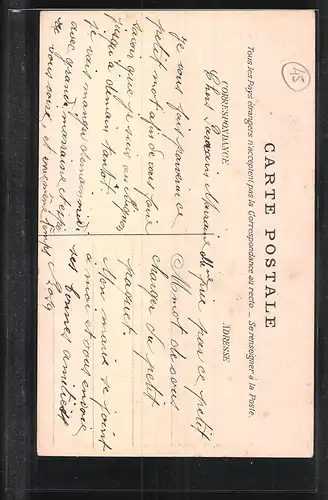 CARTE POSTALE
Tous les Pays étrangers n'acceptent pas la Correspondance au recto — Se renseigner à la Poste.
CORRESPONDANCE
ADRESSE
45
Chers Parrain, Marraine
je vous fait parvenir ce
petit mot afin de vous faire
savoir que je suis au
jusqu'à demain tantôt
je vais manger demain midi
avec grande marraine
vous voir, et
prie par ce petit
mot de vous
charger du petit
paquet
Mon mari se joint
à moi et vous envoie
ses bonnes amitiés